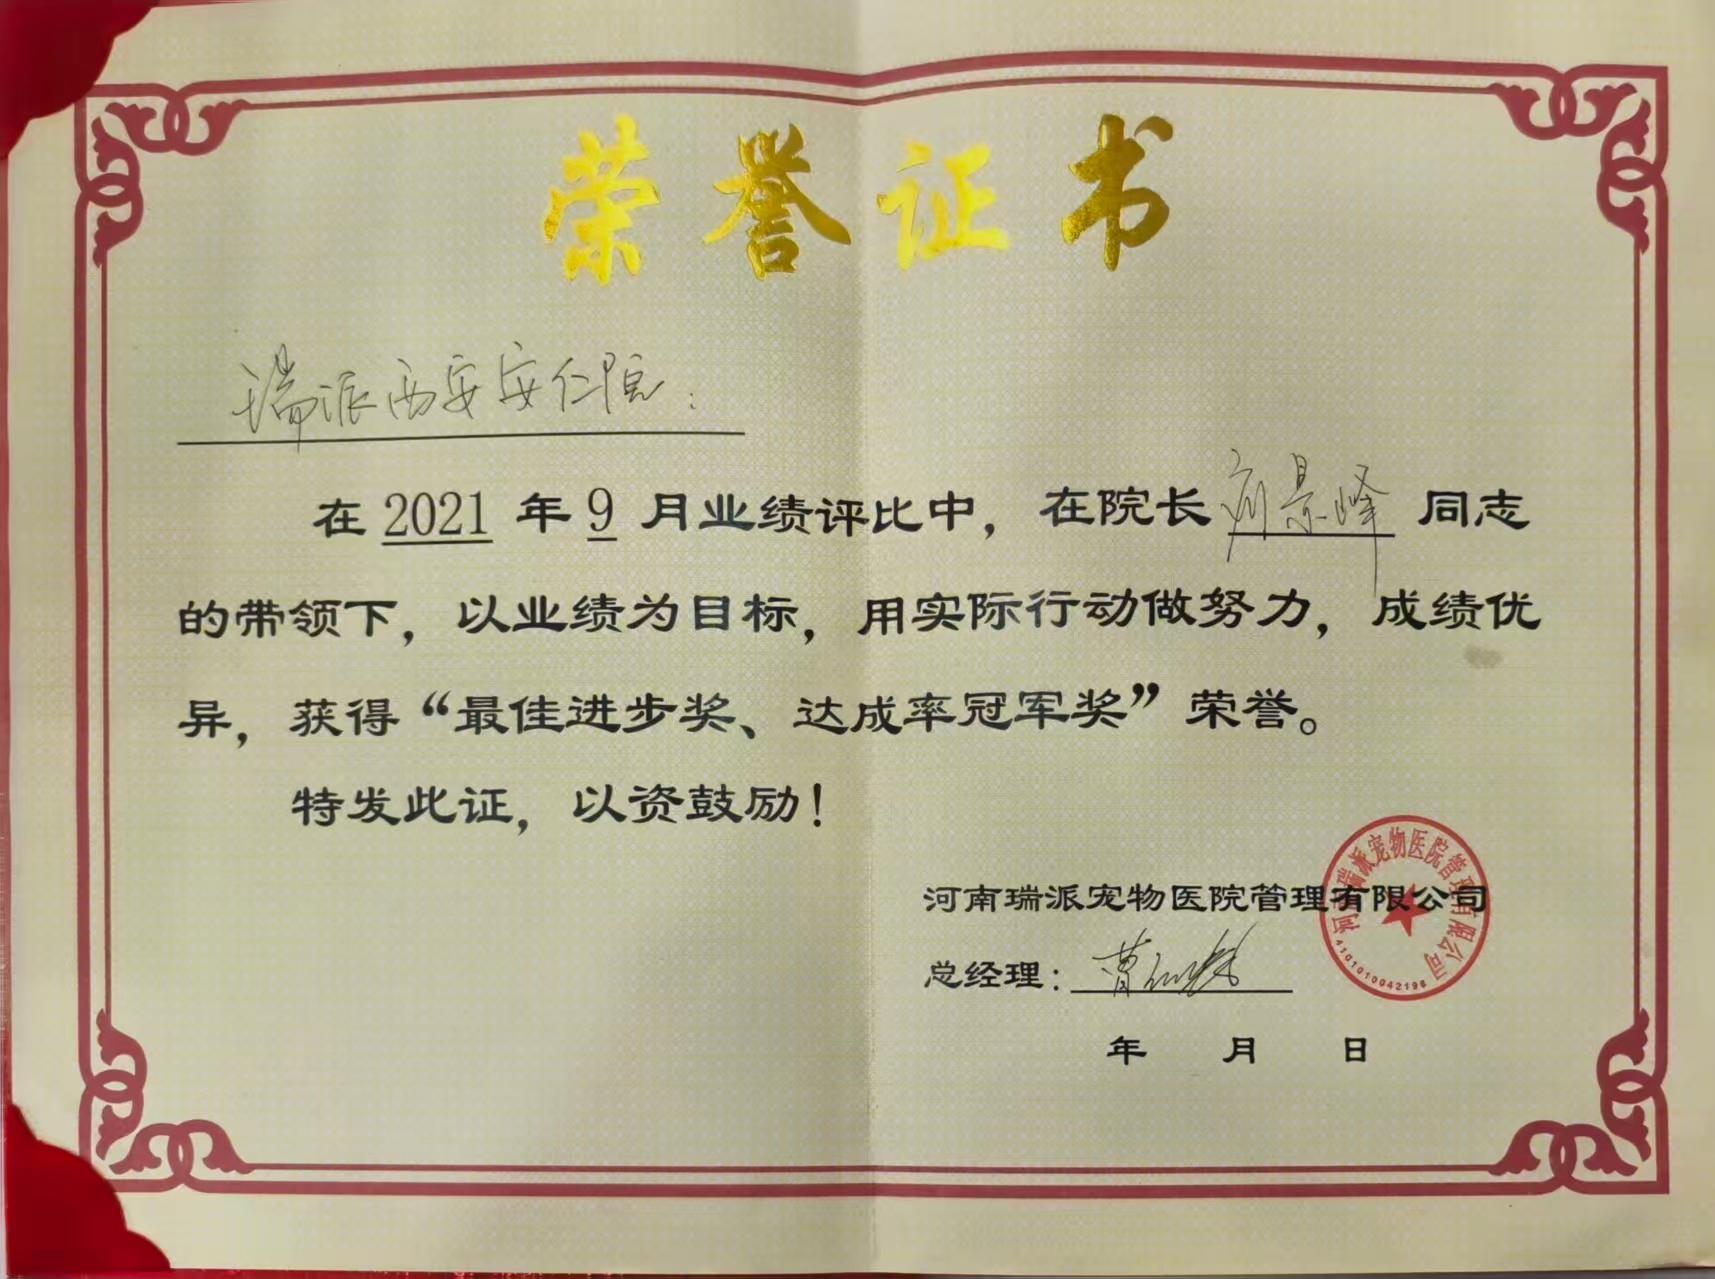 荣誉证书
瑞派西安安仁院:
在 2021 年 9 月业绩评比中，在院长 景峰 同志
的带领下，以业绩为目标，用实际行动做努力，成绩优
异，获得“最佳进步奖、达成率冠军奖”荣誉。
特发此证，以资鼓励！
河南瑞派宠物医院管理有限公司
总经理：曹
年 月 日
河南瑞派宠物医院管理有限公司
4101010042198